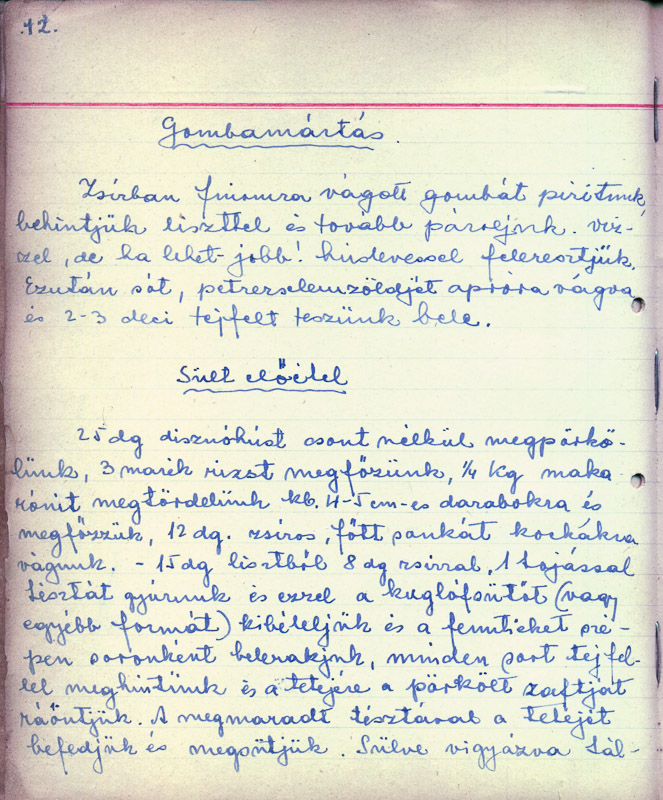 12.
Gombamártás.
Zsírban finomra vágott gombát pirítunk,
behintjük liszttel és tovább pároljuk. víz-
zel, de ha lehet - jobb! húslevessel feleresztjük.
Ezután sót, petrezselemzöldjét apróra vágva
és 2-3 deci tejfelt teszünk bele.
Sült előétel
25 dg disznóhúst csont nélkül megpörkö-
lünk, 3 marék rizst megfőzünk, 1/4 kg maka
rónit megtördelünk kb. 4-5 cm-es darabokra és
megfőzzük, 12 dg. zsíros, főtt sonkát kockákra
vágunk. - 15 dg lisztből 8 dg zsirral, 1 tojással
tésztát gyúrunk és ezzel a kuglófsütőt (vagy
egyébb formát) kibéleljük és a fenntieket szé-
pen soronként belerakjuk, minden sort tejfel-
lel meghintünk és a tetejére a pörkölt zaftját
ráöntjük. A megmaradt tésztával a tetéjét
befedjük és megsütjük. Sülve vigyázva tál-